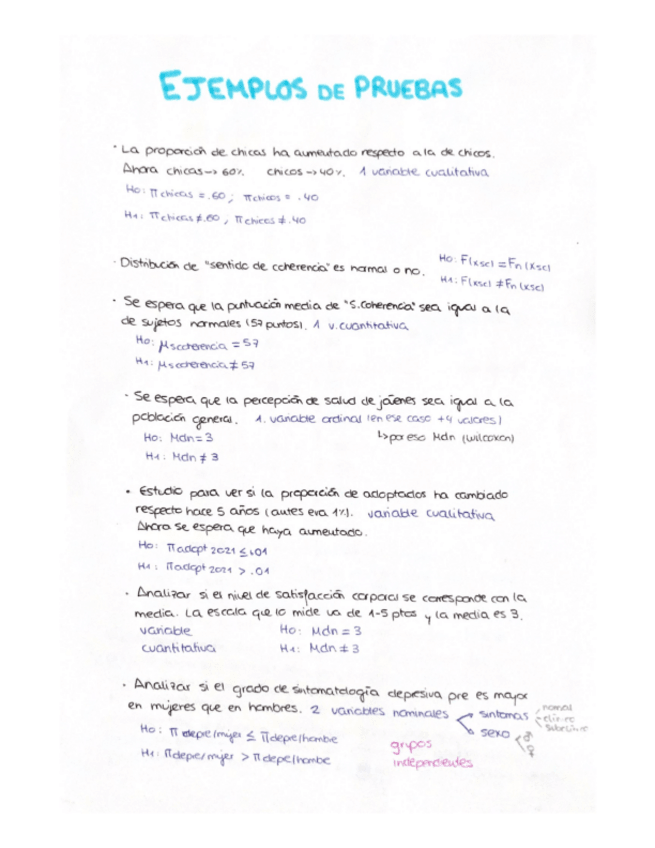 EJEMPLOS DE PRUEBAS
· La proporción de chicas ha aumentado respecto a la de chicos.
Ahora chicas -> 60%. chicos -> 40%. 1 variable cualitativa
H0: π chicas = .60; π chicos = .40
H1: π chicas ≠ .60, π chicos ≠ .40
· Distribución de "sentido de coherencia" es normal o no.
H0: F(xsc) = Fn(xsc)
H1: F(xsc) ≠ Fn(xsc)
· Se espera que la puntuación media de "S.Coherencia" sea igual a la
de sujetos normales (57 puntos). 1 v.cuantitativa
H0: μscoherencia = 57
H1: μscoherencia ≠ 57
· Se espera que la percepción de salud de jóvenes sea igual a la
población general. 1. variable ordinal (en ese caso +4 valores)
H0: Mdn = 3
↳ por eso Mdn (wilcoxon)
H1: Mdn ≠ 3
· Estudio para ver si la proporción de adoptados ha cambiado
respecto hace 5 años (antes era 1%). variable cualitativa
Ahora se espera que haya aumentado.
H0: π adopt 2021 ≤ .01
H1: π adopt 2021 > .01
· Analizar si el nivel de satisfacción corporal se corresponde con la
media. La escala que lo mide va de 1-5 ptos y la media es 3.
variable H0: Mdn = 3
cuantitativa H1: Mdn ≠ 3
· Analizar si el grado de sintomatología depresiva pre es mayor
en mujeres que en hombres. 2 variables nominales
sintomas
normal
clínico
subclínico
sexo ♂ ♀
H0: π depre/mujer ≤ π depre/hombre
H1: π depre/mujer > π depre/hombre
grupos
independientes